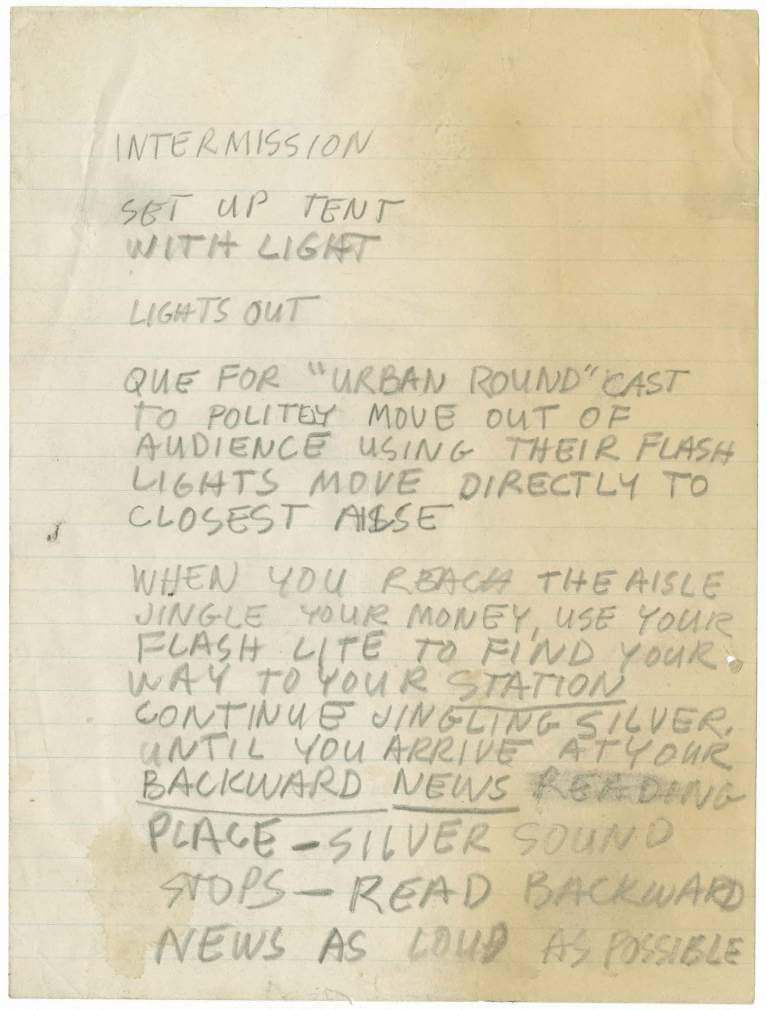 INTERMISSION
SET UP TENT
WITH LIGHT
LIGHTS OUT
QUE FOR "URBAN ROUND" CAST
TO POLITEY MOVE OUT OF
AUDIENCE USING THEIR FLASH
LIGHTS MOVE DIRECTLY TO
CLOSEST AISSE
WHEN YOU REACH THE AISLE
JINGLE YOUR MONEY, USE YOUR
FLASH LITE TO FIND YOUR
WAY TO YOUR STATION
CONTINUE JINGLING SILVER.
UNTIL YOU ARRIVE AT YOUR
BACKWARD NEWS READING
PLACE – SILVER SOUND
STOPS – READ BACKWARD
NEWS AS LOUD AS POSSIBLE